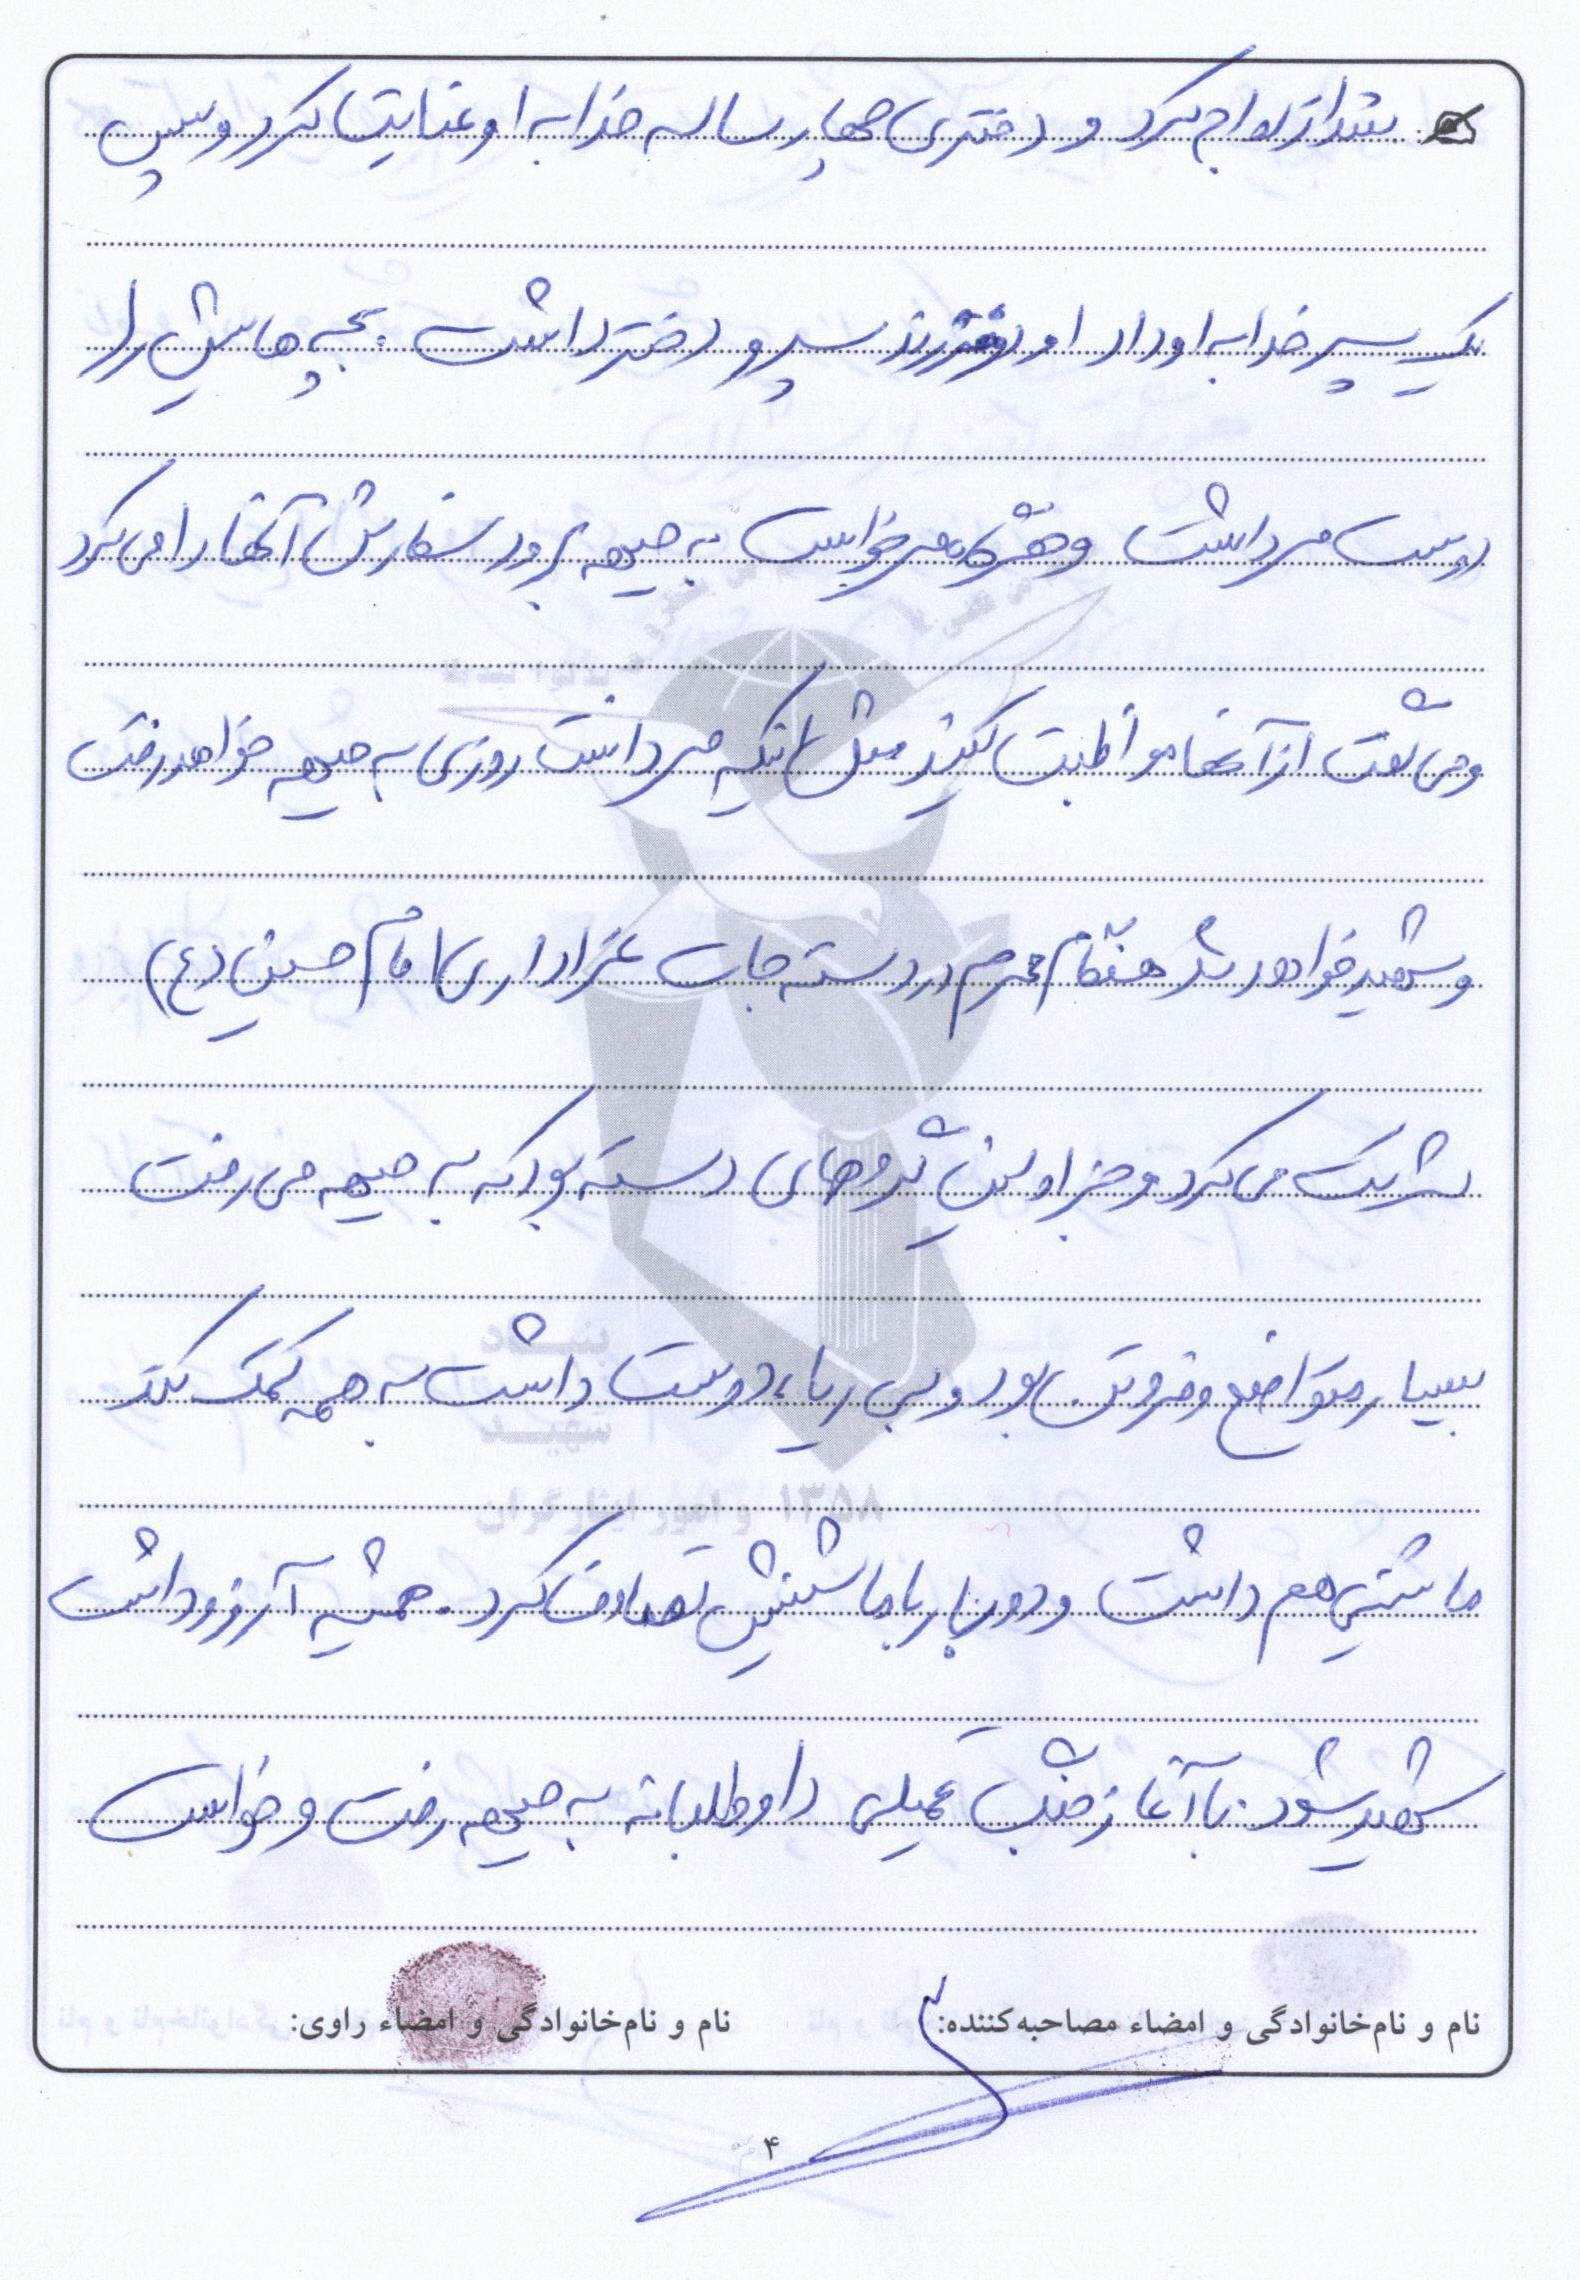 شد ازدواج کرد و دختری چهار ساله خدا به او عنایت کرد و سپس
یک پسر خدا به او داد او دو فرزند پسر و دختر داشت . بچه هایش را
دوست می داشت و هنگامی که می خواست به جبهه برود سفارش آنها را می کرد
و می گفت از آنها مواظبت کنید مثل اینکه می دانست روزی به جبهه خواهد رفت
و شهید خواهد شد هنگام محرم در دسته جات عزاداری امام حسین (ع)
شرکت می کرد و جز اولین گروههای دسته بود که به جبهه می رفت
بسیار متواضع و فروتن بود و بی ریا، دوست داشت به همه کمک کند
ماشینی هم داشت و دوبار با ماشینش تصادف کرد . همیشه آرزو داشت
شهید شود . با آغاز جنگ تحمیلی داوطلبانه به جبهه رفت و خواست
نام و نام‌خانوادگی و امضاء مصاحبه‌کننده: نام و نام‌خانوادگی و امضاء راوی:
۴